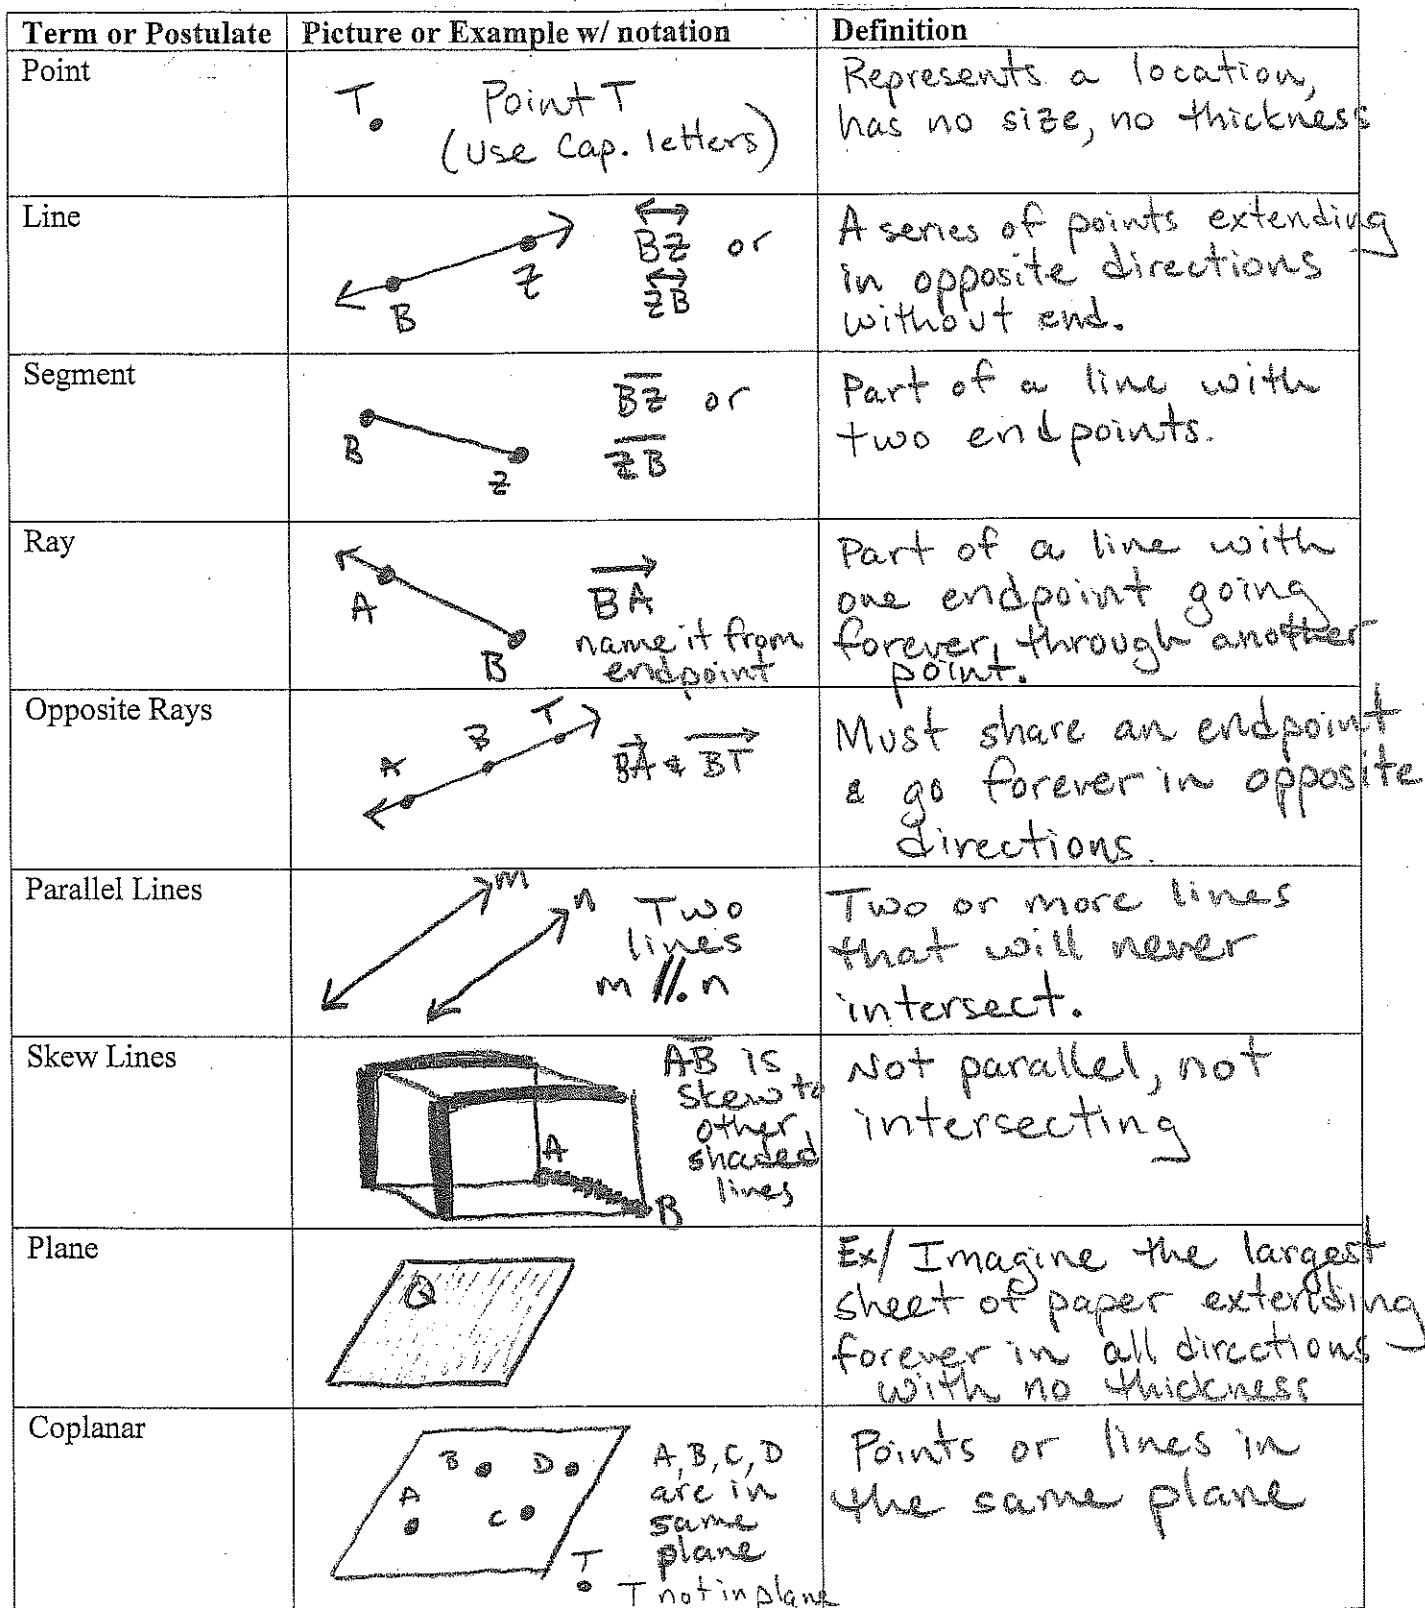 Term or Postulate Picture or Example w/ notation Definition
Point
T
Point T
(use Cap. letters)
Represents a location,
has no size, no thickness
Line
B
Z
BZ or
ZB
A series of points extending
in opposite directions
without end.
Segment
B
Z
BZ or
ZB
Part of a line with
two endpoints.
Ray
A
B
BA
name it from
endpoint
Part of a line with
one endpoint going
forever, through another
point.
Opposite Rays
A
B
T
BA & BT
Must share an endpoint
& go forever in opposite
directions.
Parallel Lines
m
n
Two
lines
m //. n
Two or more lines
that will never
intersect.
Skew Lines
A
B
AB is
skew to
other
shaded
lines
Not parallel, not
intersecting
Plane
Q
Ex/ Imagine the largest
sheet of paper extending
forever in all directions
with no thickness
Coplanar
B
D
A
C
T
A, B, C, D
are in
same
plane
T not in plane
Points or lines in
the same plane